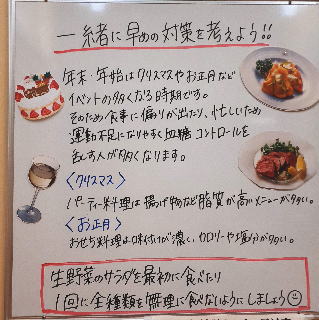 一緒に早めの対策を考えよう!!
年末・年始はクリスマスやお正月など
イベントの多くなる時期です。
そのため食事に偏りが出たり、忙しいため
運動不足になりやすく血糖コントロールを
乱す人が多くなります。
〈クリスマス〉
パーティー料理は揚げ物など脂質が高いメニューが多い。
〈お正月〉
おせち料理は味付けが濃い、カロリーや塩分が多い。
生野菜のサラダを最初に食べたり
1回に全種類を無理に食べないようにしましょう